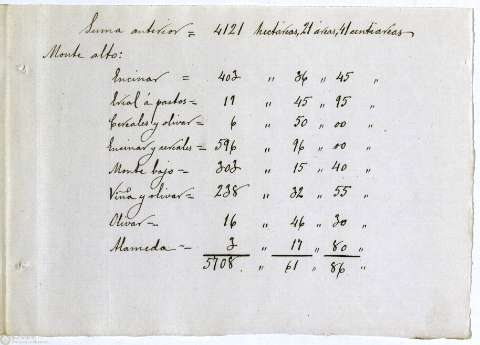 Suma anterior = 4121 hectáreas, 21 áreas, 41 centiáreas
Monte alto:
Encinar = 403 " 36 " 45 "
Erial á pastos = 19 " 45 " 95 "
Cereales y olivar = 6 " 50 " 00 "
Encinar y cereales = 596 " 96 " 00 "
Monte bajo = 303 " 15 " 40 "
Viña y olivar = 238 " 32 " 55 "
Olivar = 16 " 46 " 30 "
Alameda = 3 " 17 " 80 "
5708. " 61 " 86 "